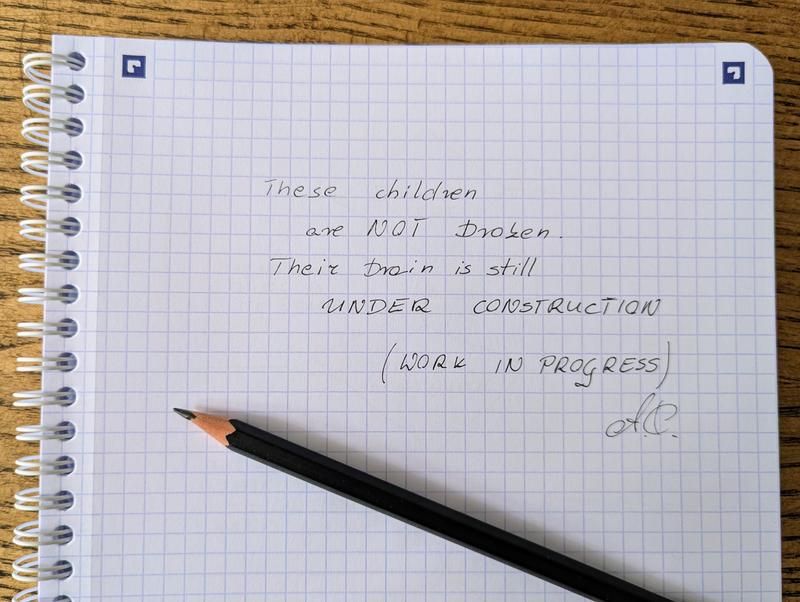 These children
are NOT broken.
Their brain is still
UNDER CONSTRUCTION
(WORK IN PROGRESS)
A.C.